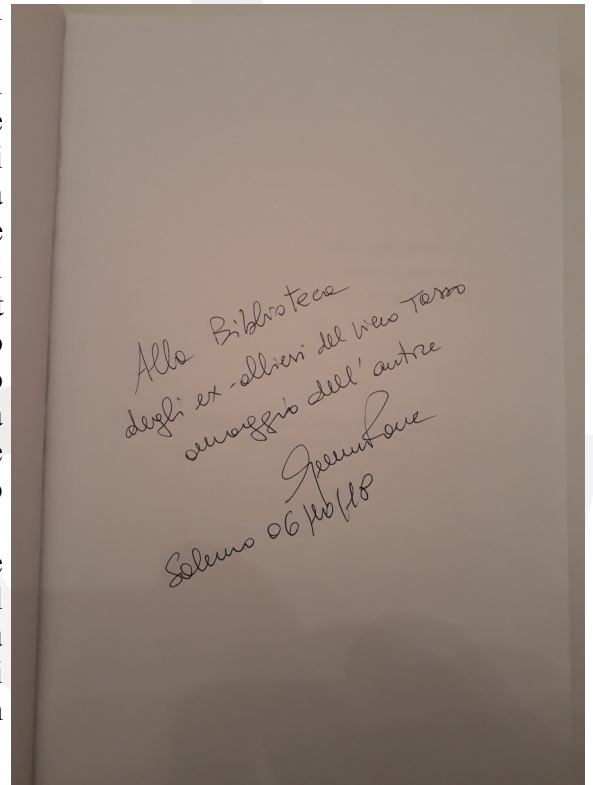 Alla Biblioteca
degli ex-allievi del Liceo Tasso
omaggio dell'autore
Salerno 06/10/18